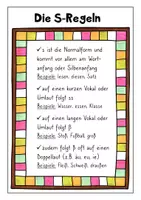 Die S-Regeln
✓ s ist die Normalform und
kommt vor allem am Wort-
anfang oder Silbenanfang
Beispiele: lesen, diesen, Satz
✓ auf einen kurzen Vokal oder
Umlaut folgt ss
Beispiele: Wasser, essen, Klasse
✓ auf einen langen Vokal oder
Umlaut folgt ß
Beispiele: Stoß, Fußball, groß
✓ zudem folgt ß oft auf einen
Doppellaut (z.B. au, eu, ei)
Beispiele: Fleiß, Schweiß, draußen